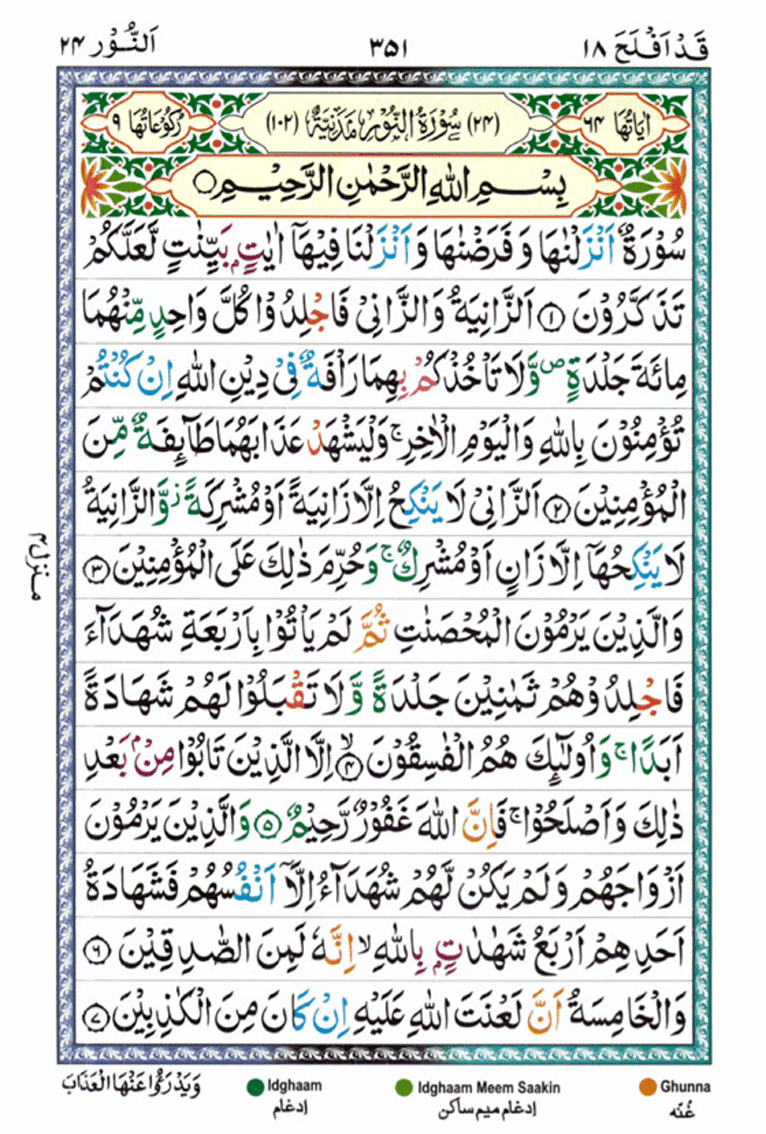 قَدْ اَفْلَحَ ۱۸ ۳۵۱ اَلنُّوْر ۲۴
اٰیَاتُهَا ۶۴ (۲۴) سُوْرَةُ النُّوْرِ مَدَنِیَّةٌ (۱۰۲) رُكُوْعَاتُهَا ۹
بِسْمِ اللّٰهِ الرَّحْمٰنِ الرَّحِیْمِ ○
سُوْرَةٌ اَنْزَلْنٰهَا وَ فَرَضْنٰهَا وَ اَنْزَلْنَا فِیْهَاۤ اٰیٰتٍۭ بَیِّنٰتٍ لَّعَلَّكُمْ
تَذَكَّرُوْنَ ۱ اَلزَّانِیَةُ وَ الزَّانِیْ فَاجْلِدُوْا كُلَّ وَاحِدٍ مِّنْهُمَا
مِائَةَ جَلْدَةٍ ۪ وَّ لَا تَاْخُذْكُمْ بِهِمَا رَاْفَةٌ فِیْ دِیْنِ اللّٰهِ اِنْ كُنْتُمْ
تُؤْمِنُوْنَ بِاللّٰهِ وَ الْیَوْمِ الْاٰخِرِ ۚ وَ لْیَشْهَدْ عَذَابَهُمَا طَآىِٕفَةٌ مِّنَ
الْمُؤْمِنِیْنَ ۲ اَلزَّانِیْ لَا یَنْكِحُ اِلَّا زَانِیَةً اَوْ مُشْرِكَةً ؗ وَّ الزَّانِیَةُ
لَا یَنْكِحُهَاۤ اِلَّا زَانٍ اَوْ مُشْرِكٌ ۚ وَ حُرِّمَ ذٰلِكَ عَلَی الْمُؤْمِنِیْنَ ۳
وَ الَّذِیْنَ یَرْمُوْنَ الْمُحْصَنٰتِ ثُمَّ لَمْ یَاْتُوْا بِاَرْبَعَةِ شُهَدَآءَ
فَاجْلِدُوْهُمْ ثَمٰنِیْنَ جَلْدَةً وَّ لَا تَقْبَلُوْا لَهُمْ شَهَادَةً
اَبَدًا ۚ وَ اُولٰٓىِٕكَ هُمُ الْفٰسِقُوْنَ ۙ۴ اِلَّا الَّذِیْنَ تَابُوْا مِنْۢ بَعْدِ
ذٰلِكَ وَ اَصْلَحُوْا ۚ فَاِنَّ اللّٰهَ غَفُوْرٌ رَّحِیْمٌ ۵ وَ الَّذِیْنَ یَرْمُوْنَ
اَزْوَاجَهُمْ وَ لَمْ یَكُنْ لَّهُمْ شُهَدَآءُ اِلَّاۤ اَنْفُسُهُمْ فَشَهَادَةُ
اَحَدِهِمْ اَرْبَعُ شَهٰدٰتٍۭ بِاللّٰهِ ۙ اِنَّهٗ لَمِنَ الصّٰدِقِیْنَ ۶
وَ الْخَامِسَةُ اَنَّ لَعْنَتَ اللّٰهِ عَلَیْهِ اِنْ كَانَ مِنَ الْكٰذِبِیْنَ ۷
منزل ۴
وَ یَدْرَؤُا عَنْهَا الْعَذَابَ
Idghaam
ادغام
Idghaam Meem Saakin
ادغام میم ساکن
Ghunna
غنّه